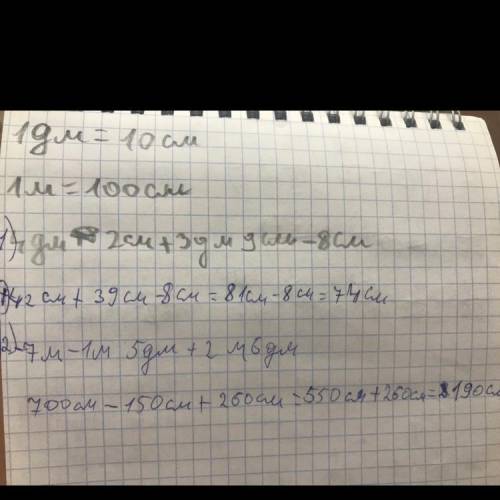 1дм = 10см
1м = 100см
1) 4дм 2см + 3дм 9см - 8см
42см + 39см - 8см = 81см - 8см = 74см
2) 7м - 1м 5дм + 2м 6дм
700см - 150см + 260см = 550см + 260см = 190см